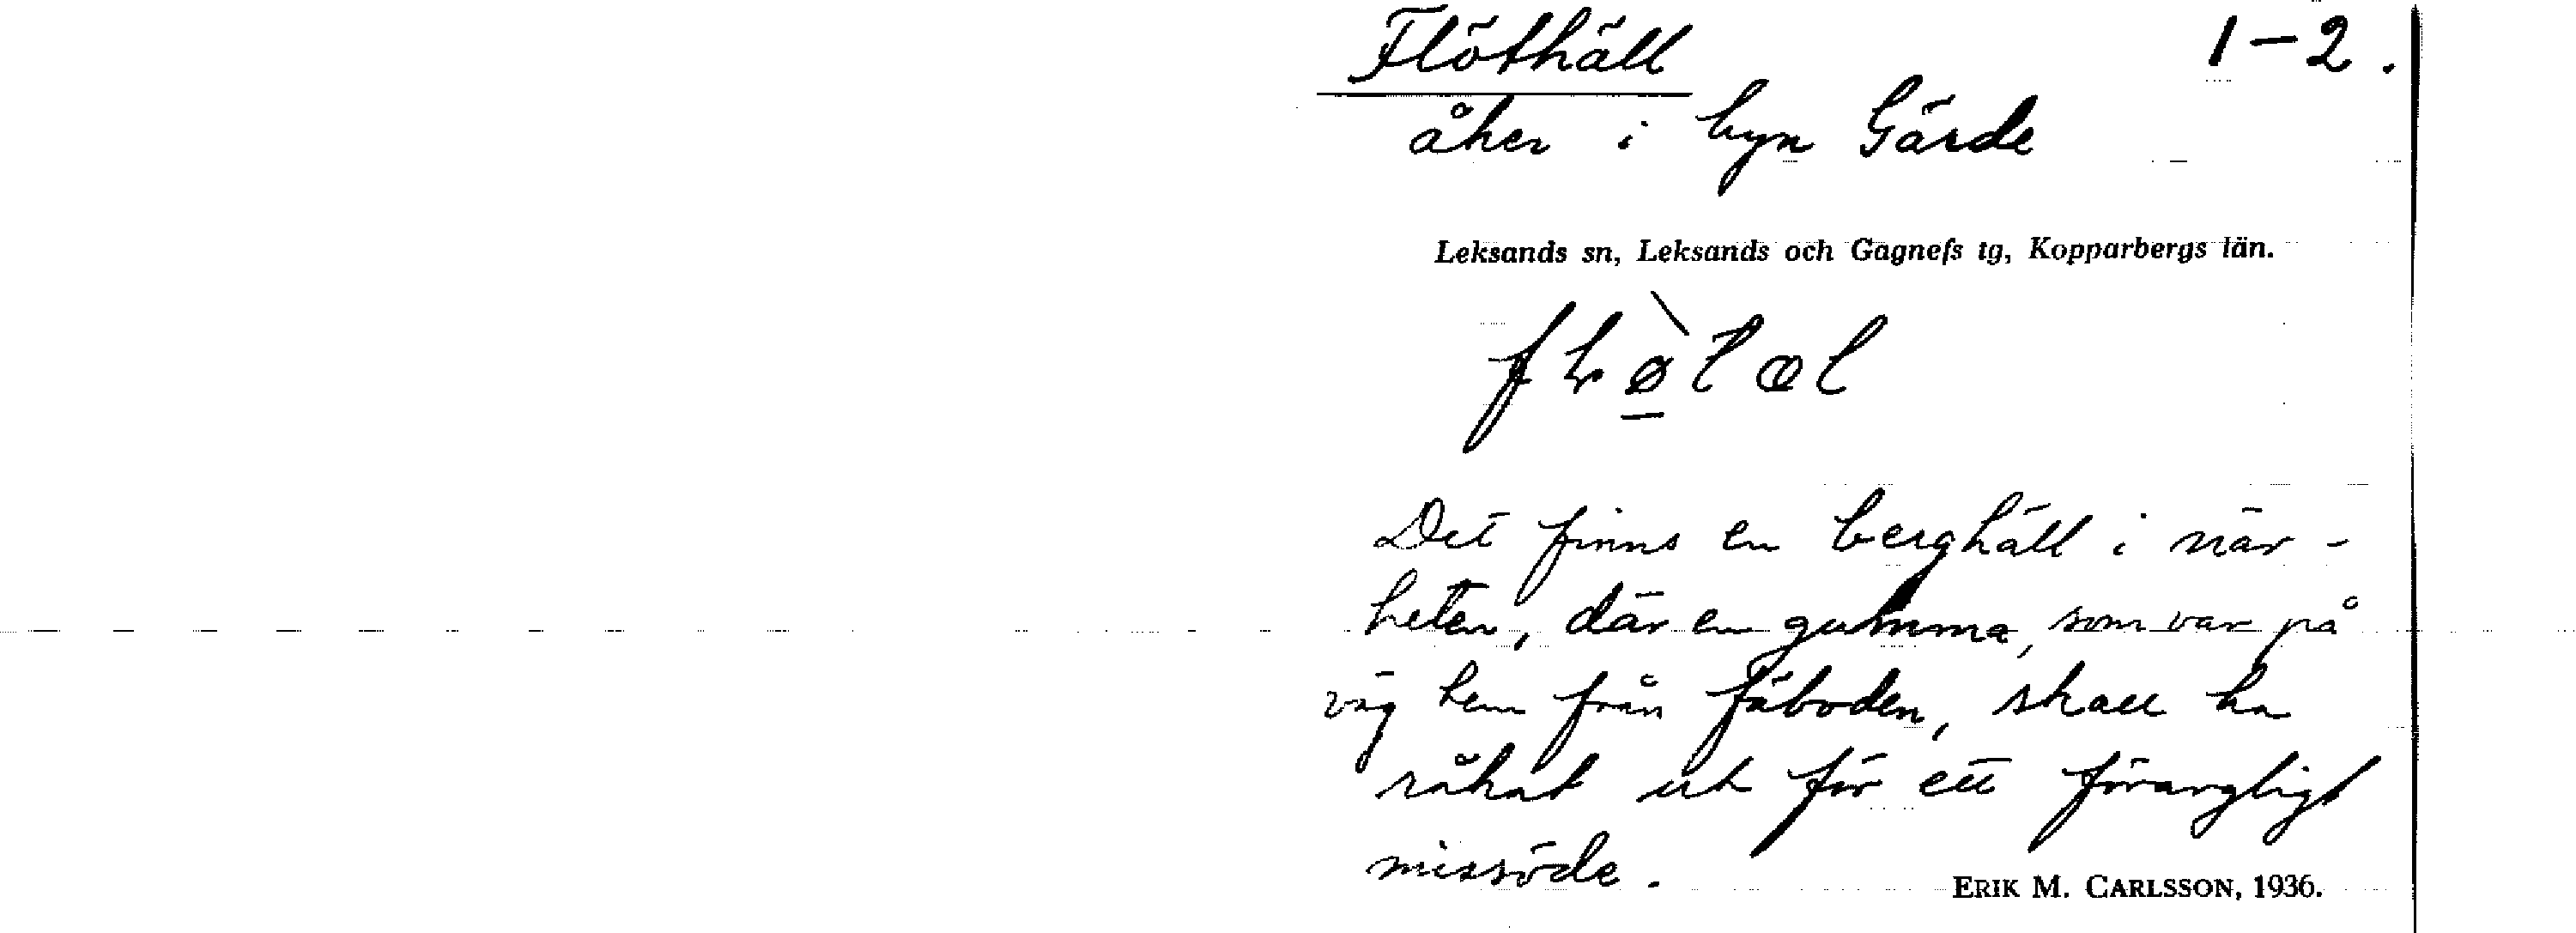 Flöthäll 1-2.
åker i byn Gärde
Leksands sn, Leksands och Gagnefs tg, Kopparbergs län.
Det finns en berghäll i när-
heten, där en gumma, som var på
väg hem från fäboden, skall ha
råkat ut för ett förargligt
missöde.
ERIK M. CARLSSON, 1936.